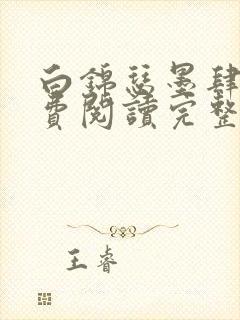 白錦瑟墨肆
費閱讀完整
王睿